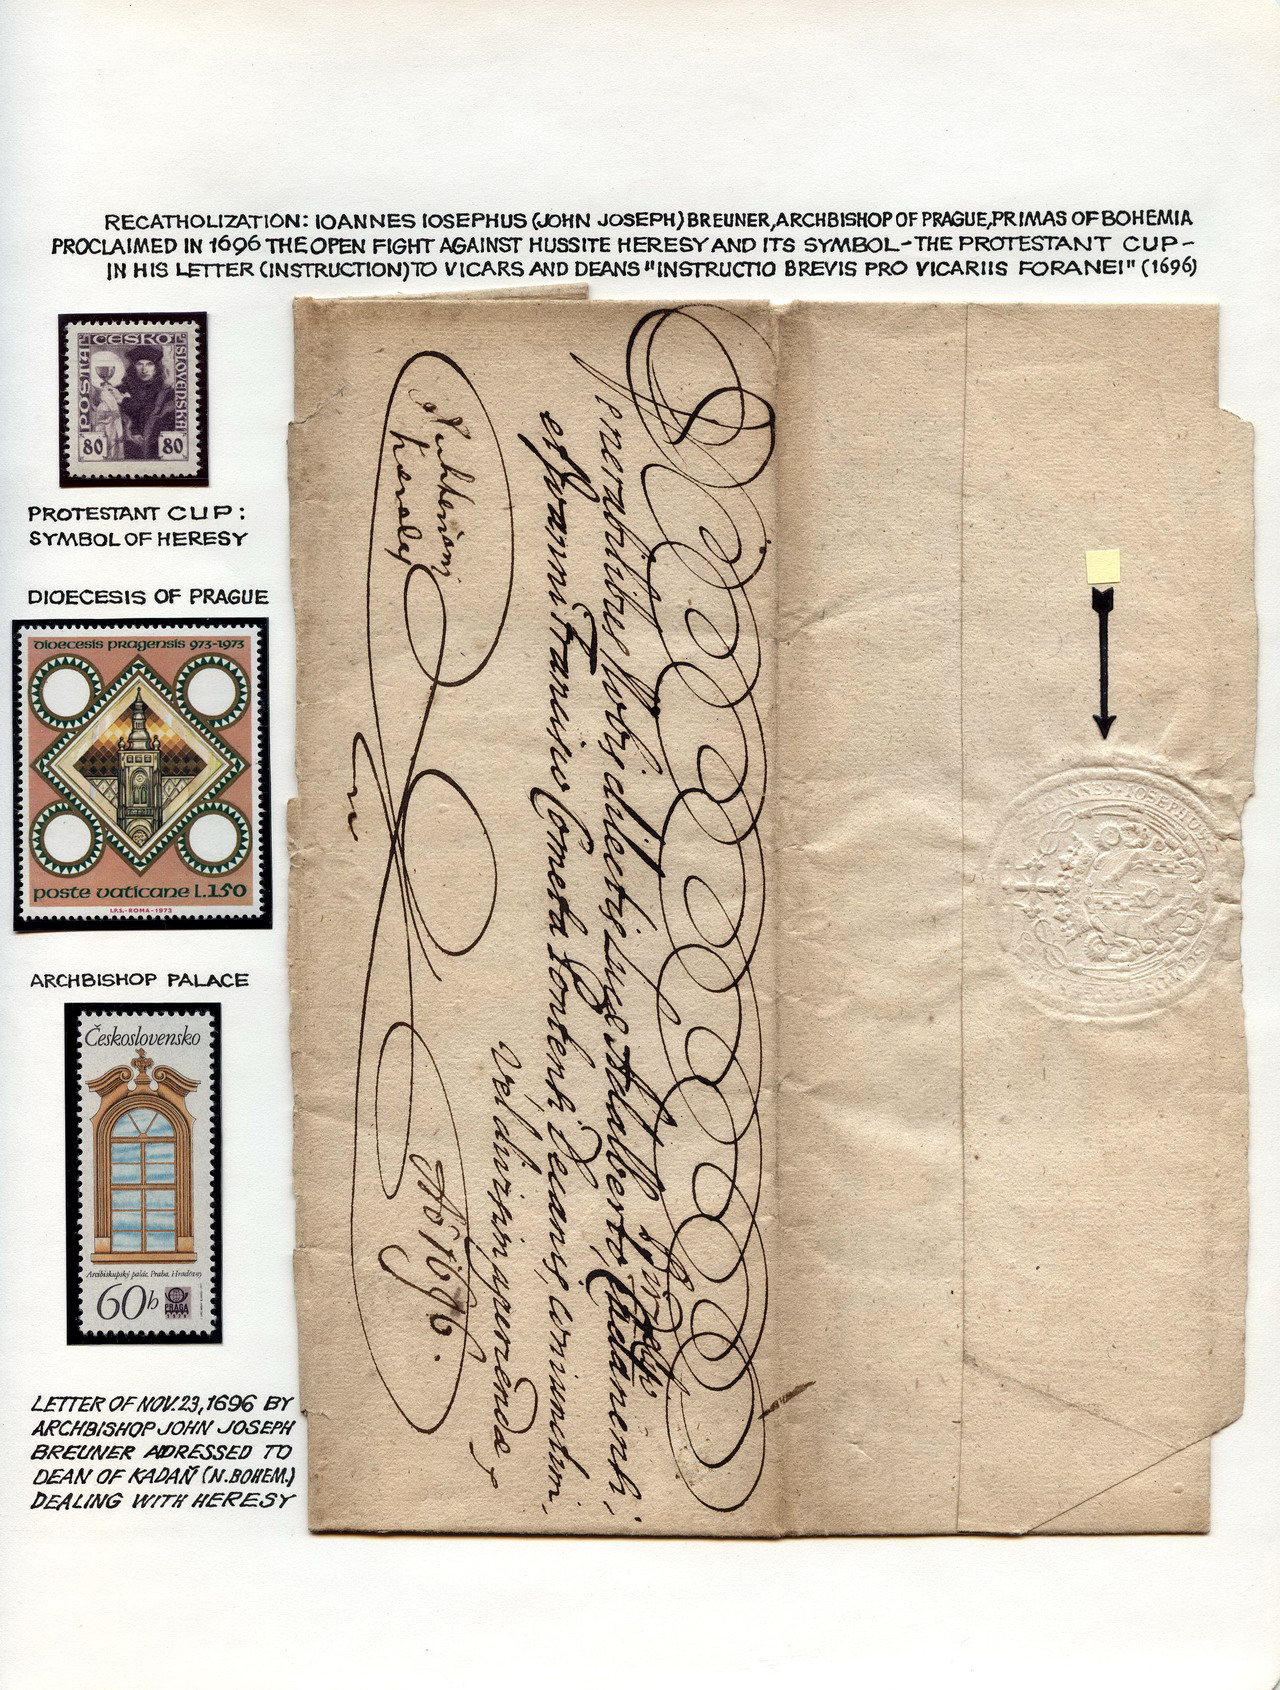 RECATHOLIZATION: IOANNES IOSEPHUS (JOHN JOSEPH) BREUNER, ARCHBISHOP OF PRAGUE, PRIMAS OF BOHEMIA
PROCLAIMED IN 1696 THE OPEN FIGHT AGAINST HUSSITE HERESY AND ITS SYMBOL - THE PROTESTANT CUP -
IN HIS LETTER (INSTRUCTION) TO VICARS AND DEANS "INSTRUCTIO BREVIS PRO VICARIIS FORANEI" (1696)
POSTA ČESKO SLOVENSKÁ
80 80
PROTESTANT CUP:
SYMBOL OF HERESY
DIOECESIS OF PRAGUE
dioecesis pragensis 973-1973
poste vaticane L.150
I.P.S.-ROMA-1973
ARCHBISHOP PALACE
Československo
Arcibiskupský palác, Praha, Hradčany
60h
PRAGA
LETTER OF NOV. 23, 1696 BY
ARCHBISHOP JOHN JOSEPH
BREUNER ADRESSED TO
DEAN OF KADAŇ (N. BOHEM.)
DEALING WITH HERESY
Venerabilibus Nobis dilectis
et Joanni Francisco Decanis
Aō 1696.
IOANNES IOSEPHUS